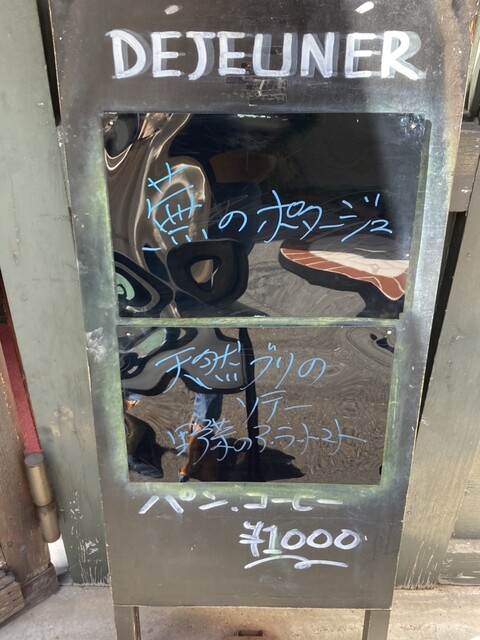 DEJEUNER
蕪のポタージュ
天然ブリの
ソテー
野菜のア・ラ・トマト
パン、コーヒー
¥1000